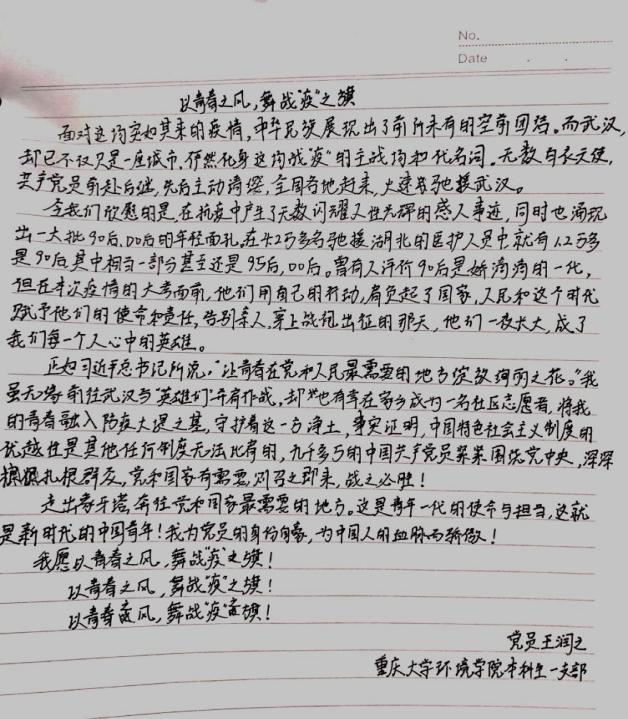 No.
Date . .
以青春之风，舞战“疫”之旗
面对这场突如其来的疫情，中华民族展现出了前所未有的空前团结。而武汉，
却已不仅只是一座城市，俨然化身这场战“疫”的主战场和代名词。无数白衣天使，
共产党员前赴后继，先后主动请缨，全国各地赶来，火速驰援武汉。
令我们欣慰的是，在抗疫中产生了无数闪耀人性光辉的感人事迹，同时也涌现
出一大批90后、00后的年轻面孔，在4.2万多名驰援湖北的医护人员中就有1.2万多
是90后，其中相当一部分甚至还是95后、00后。曾有人评价90后是娇滴滴的一代，
但在本次疫情的大考面前，他们用自己的行动，肩负起了国家，人民和这个时代
赋予他们的使命和责任，告别亲人，穿上战袍出征的那天，他们一夜长大，成了
我们每一个人心中的英雄。
正如习近平总书记所说，“让青春在党和人民最需要的地方绽放绚丽之花。”我
虽无缘前往武汉与“英雄们”并肩作战，却也有幸在家乡成为一名社区志愿者，将我
的青春融入防疫大堤之基，守护着这一方净土，事实证明，中国特色社会主义制度的
优越性是其他任何制度无法比肩的，九千多万的中国共产党员紧紧围绕党中央，深深
扎根群众，党和国家有需要，则召之即来，战之必胜！
走出象牙塔，奔往党和国家最需要的地方。这是青年一代的使命与担当，这就
是新时代的中国青年！我为党员的身份自豪，为中国人的血脉而骄傲！
我愿以青春之风，舞战“疫”之旗！
以青春之风，舞战“疫”之旗！
以青春之风，舞战“疫”之旗！
党员王润之
重庆大学环境学院本科生一支部